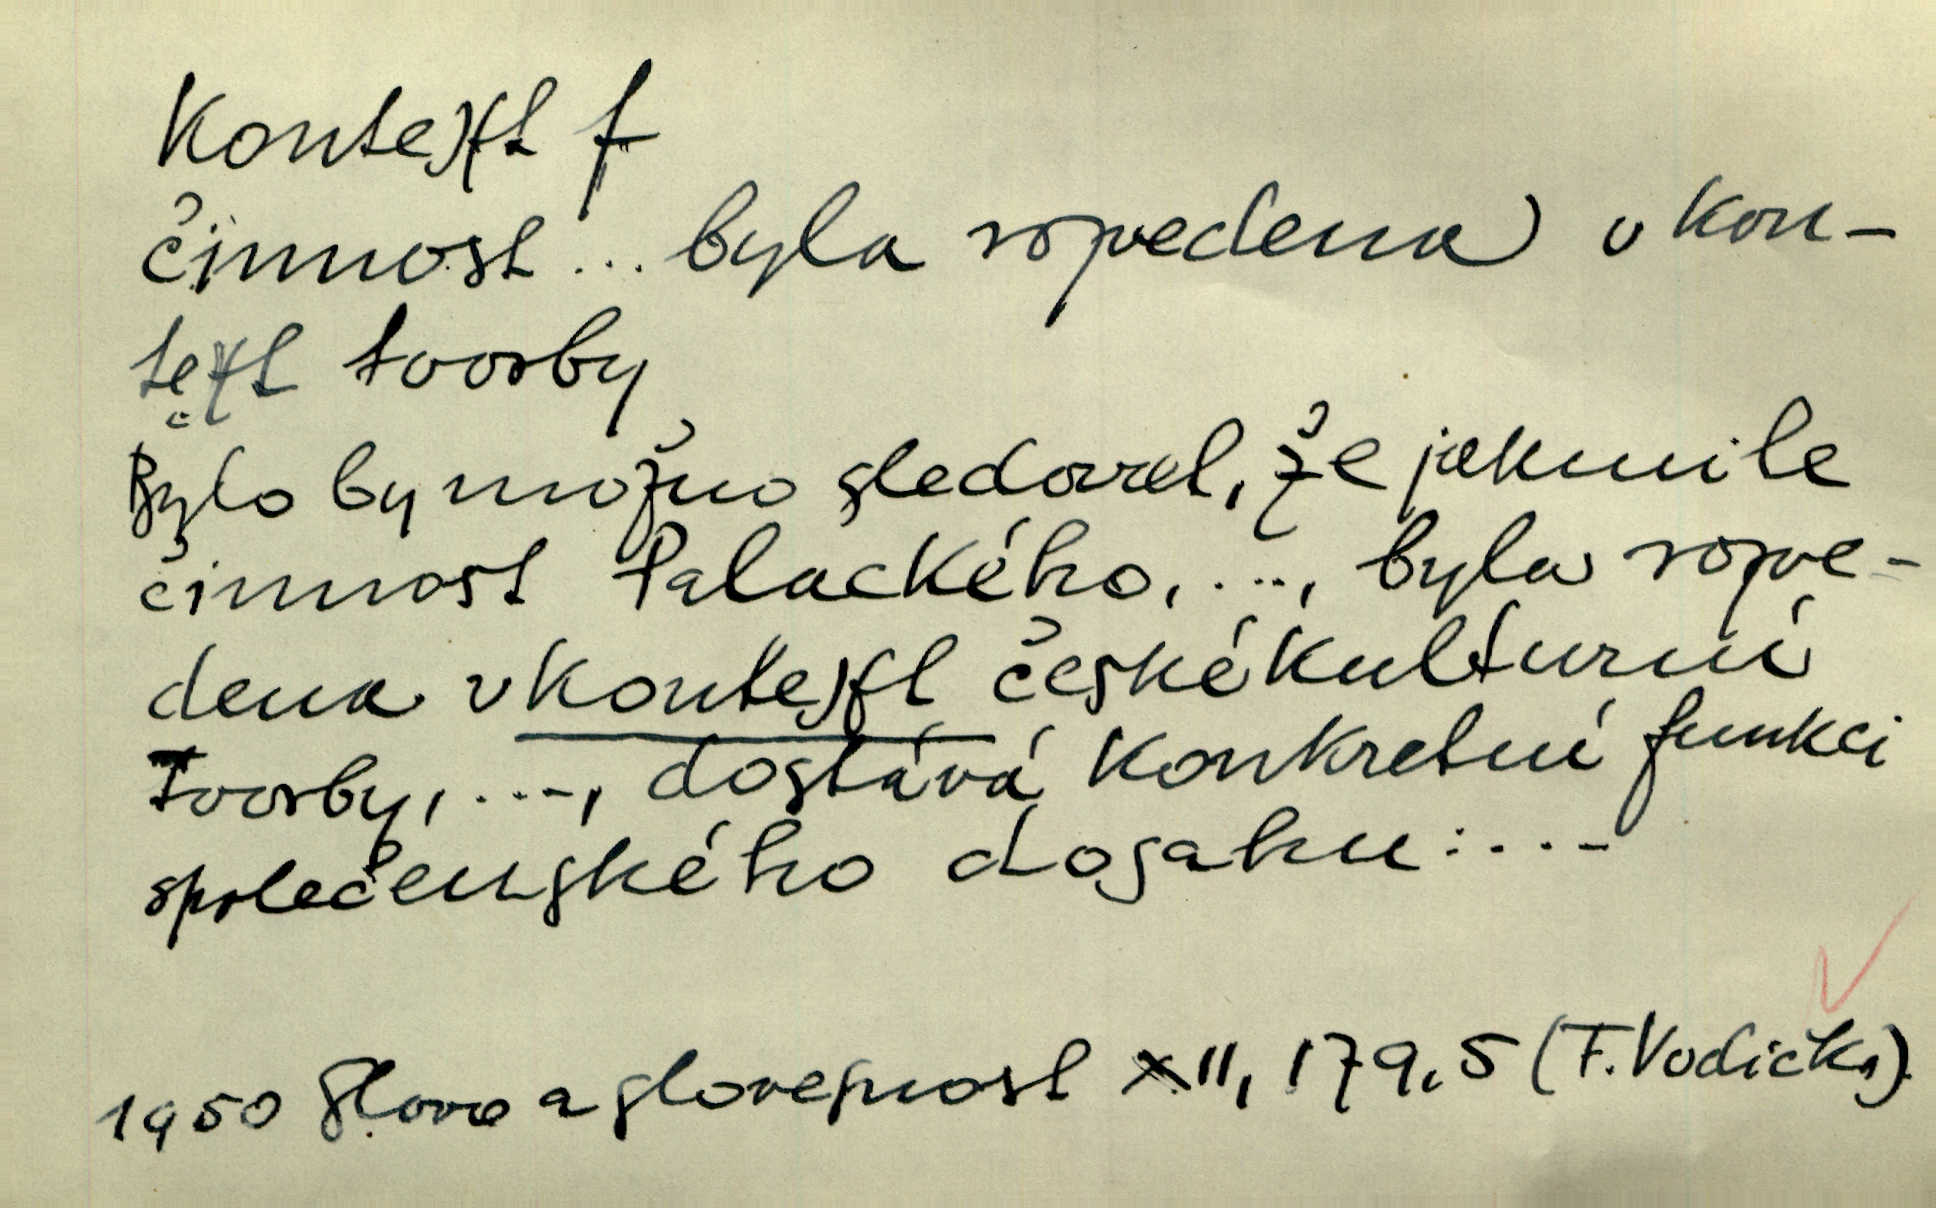 Kontext f
činnost ... byla rozvedena v kon-
text tvorby
Bylo by možno sledovat, že jakmile
činnost Palackého, ..., byla rozve-
dena v kontext české kulturní
tvorby, ..., dostává konkretní funkci
společenského dosahu: ....
1950 Slovo a slovesnost XII, 179, 5 (F. Vodička)